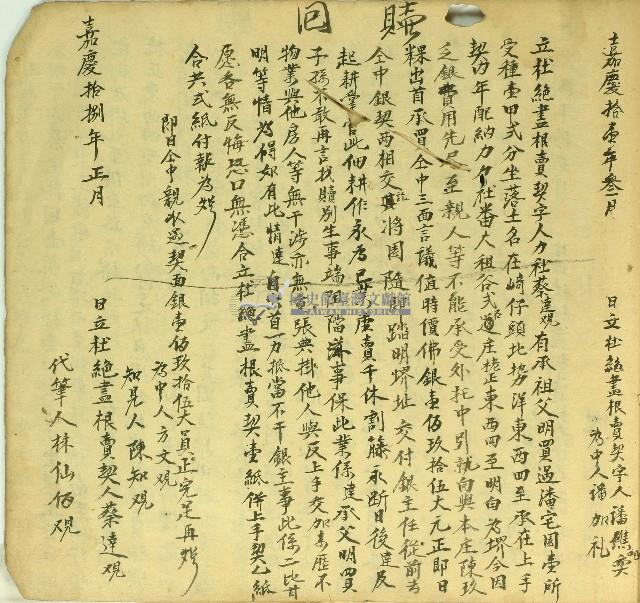 嘉慶拾壹年叁月
日立杜絕盡根賣契字人潘維奕
為中人潘加礼
贖回
立杜絕盡根賣契字人力社蔡達觀有承祖父明買過潘宅园壹所
受種壹甲式分坐落土名在崎仔頭北勢洋東西四至承在上手
契內年配納力力社番大租谷式石道庄棧正東西四至明白為界今因
乏銀費用先尽至親人等不能承受外托中引就向與本庄陳玖
粿出首承買仝中三面言議值時價佛銀壹佰玖拾伍大元正即日
仝中銀契兩相交訖其將园隨即踏明界址交付銀主任從前去
起耕掌管此佃耕作永為己業一賣千休割藤永斷日後達及
子孫不敢再言找贖別生事端阻擋滋事保此業係達承父明買
物業與他房人等無干涉亦無重張典掛他人與及上手交加來歷不
明等情為碍如有此情達自出首一力抵當不干銀主事此係二比甘
愿各無反悔恐口無憑合立杜絕盡根賣契壹紙併上手契乙紙
合共式紙付執為炤
即日仝中親收過契面銀壹佰玖拾伍大員正完足再炤
為中人方文觀
知見人陳知觀
日立杜絕盡根賣契人蔡達觀
代筆人林仙佰觀
嘉慶拾捌年正月
國史館臺灣文獻館
TAIWAN HISTORICA